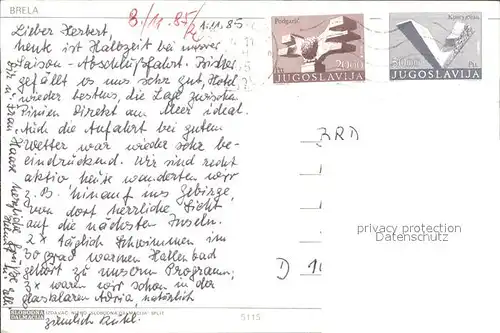 BRELA
8./11.85/k
1.11.85
Lieber Herbert,
heute ist Halbzeit bei unserer
Saison-Abschlußfahrt. Bisher
gefällt es uns sehr gut, Hotel
wieder bestens, die Lage zwischen
Pinien direkt am Meer ideal.
Auch die Anfahrt bei gutem
Wetter war wieder sehr be-
eindruckend. Wir sind recht
aktiv heute wanderten wir
z.B. hinauf ins Gebirge,
von dort herrliche Sicht
auf die nächsten Inseln.
2x täglich Schwimmen im
30 grad warmen Hallenbad
gehört zu unserem Programm,
2x waren wir schon in der
glasklaren Adria, natürlich
ziemlich kühl.
Dir u. Frau herzliche Grüße
Podgarić
2000
JUGOSLAVIJA
Din
Kadinjača
JUGOSLAVIJA
Din
BRD
D
privacy protection
Copyright
SLOBODNA DALMACIJA
IZDAVAČ: NIŠRO »SLOBODNA DALMACIJA« SPLIT
5115